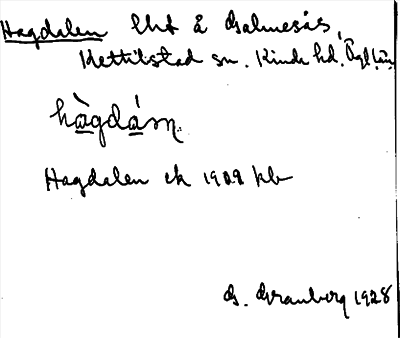 Hagdalen lht å Galmesås,
Kettilstad sn. Kinda hd. Ögl. län
hàgdásn.
Hagdalen ek 1909 kb
G. Granberg 1928